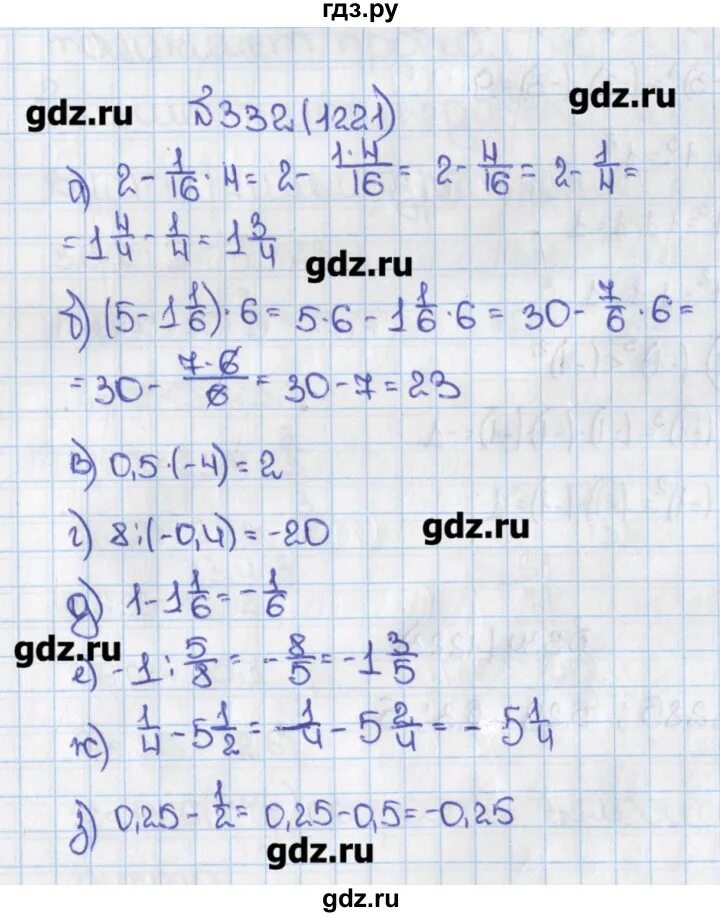 гдз.ру
gdz.ru
gdz.ru
№332 (1221)
а) 2 - 1/16 · 4 = 2 - 1·4/16 = 2 - 4/16 = 2 - 1/4 =
= 1 4/4 - 1/4 = 1 3/4
gdz.ru
б) (5 - 1 1/6) · 6 = 5·6 - 1 1/6 · 6 = 30 - 7/6 · 6 =
= 30 - 7·6/6 = 30 - 7 = 23
в) 0,5·(-4) = 2
gdz.ru
г) 8:(-0,4) = -20
д) 1 - 1 1/6 = - 1/6
gdz.ru
е) -1 : 5/8 = - 8/5 = -1 3/5
ж) 1/4 - 5 1/2 = 1/4 - 5 2/4 = - 5 1/4
з) 0,25 - 1/2 = 0,25 - 0,5 = -0,25
gdz.ru
gdz.ru